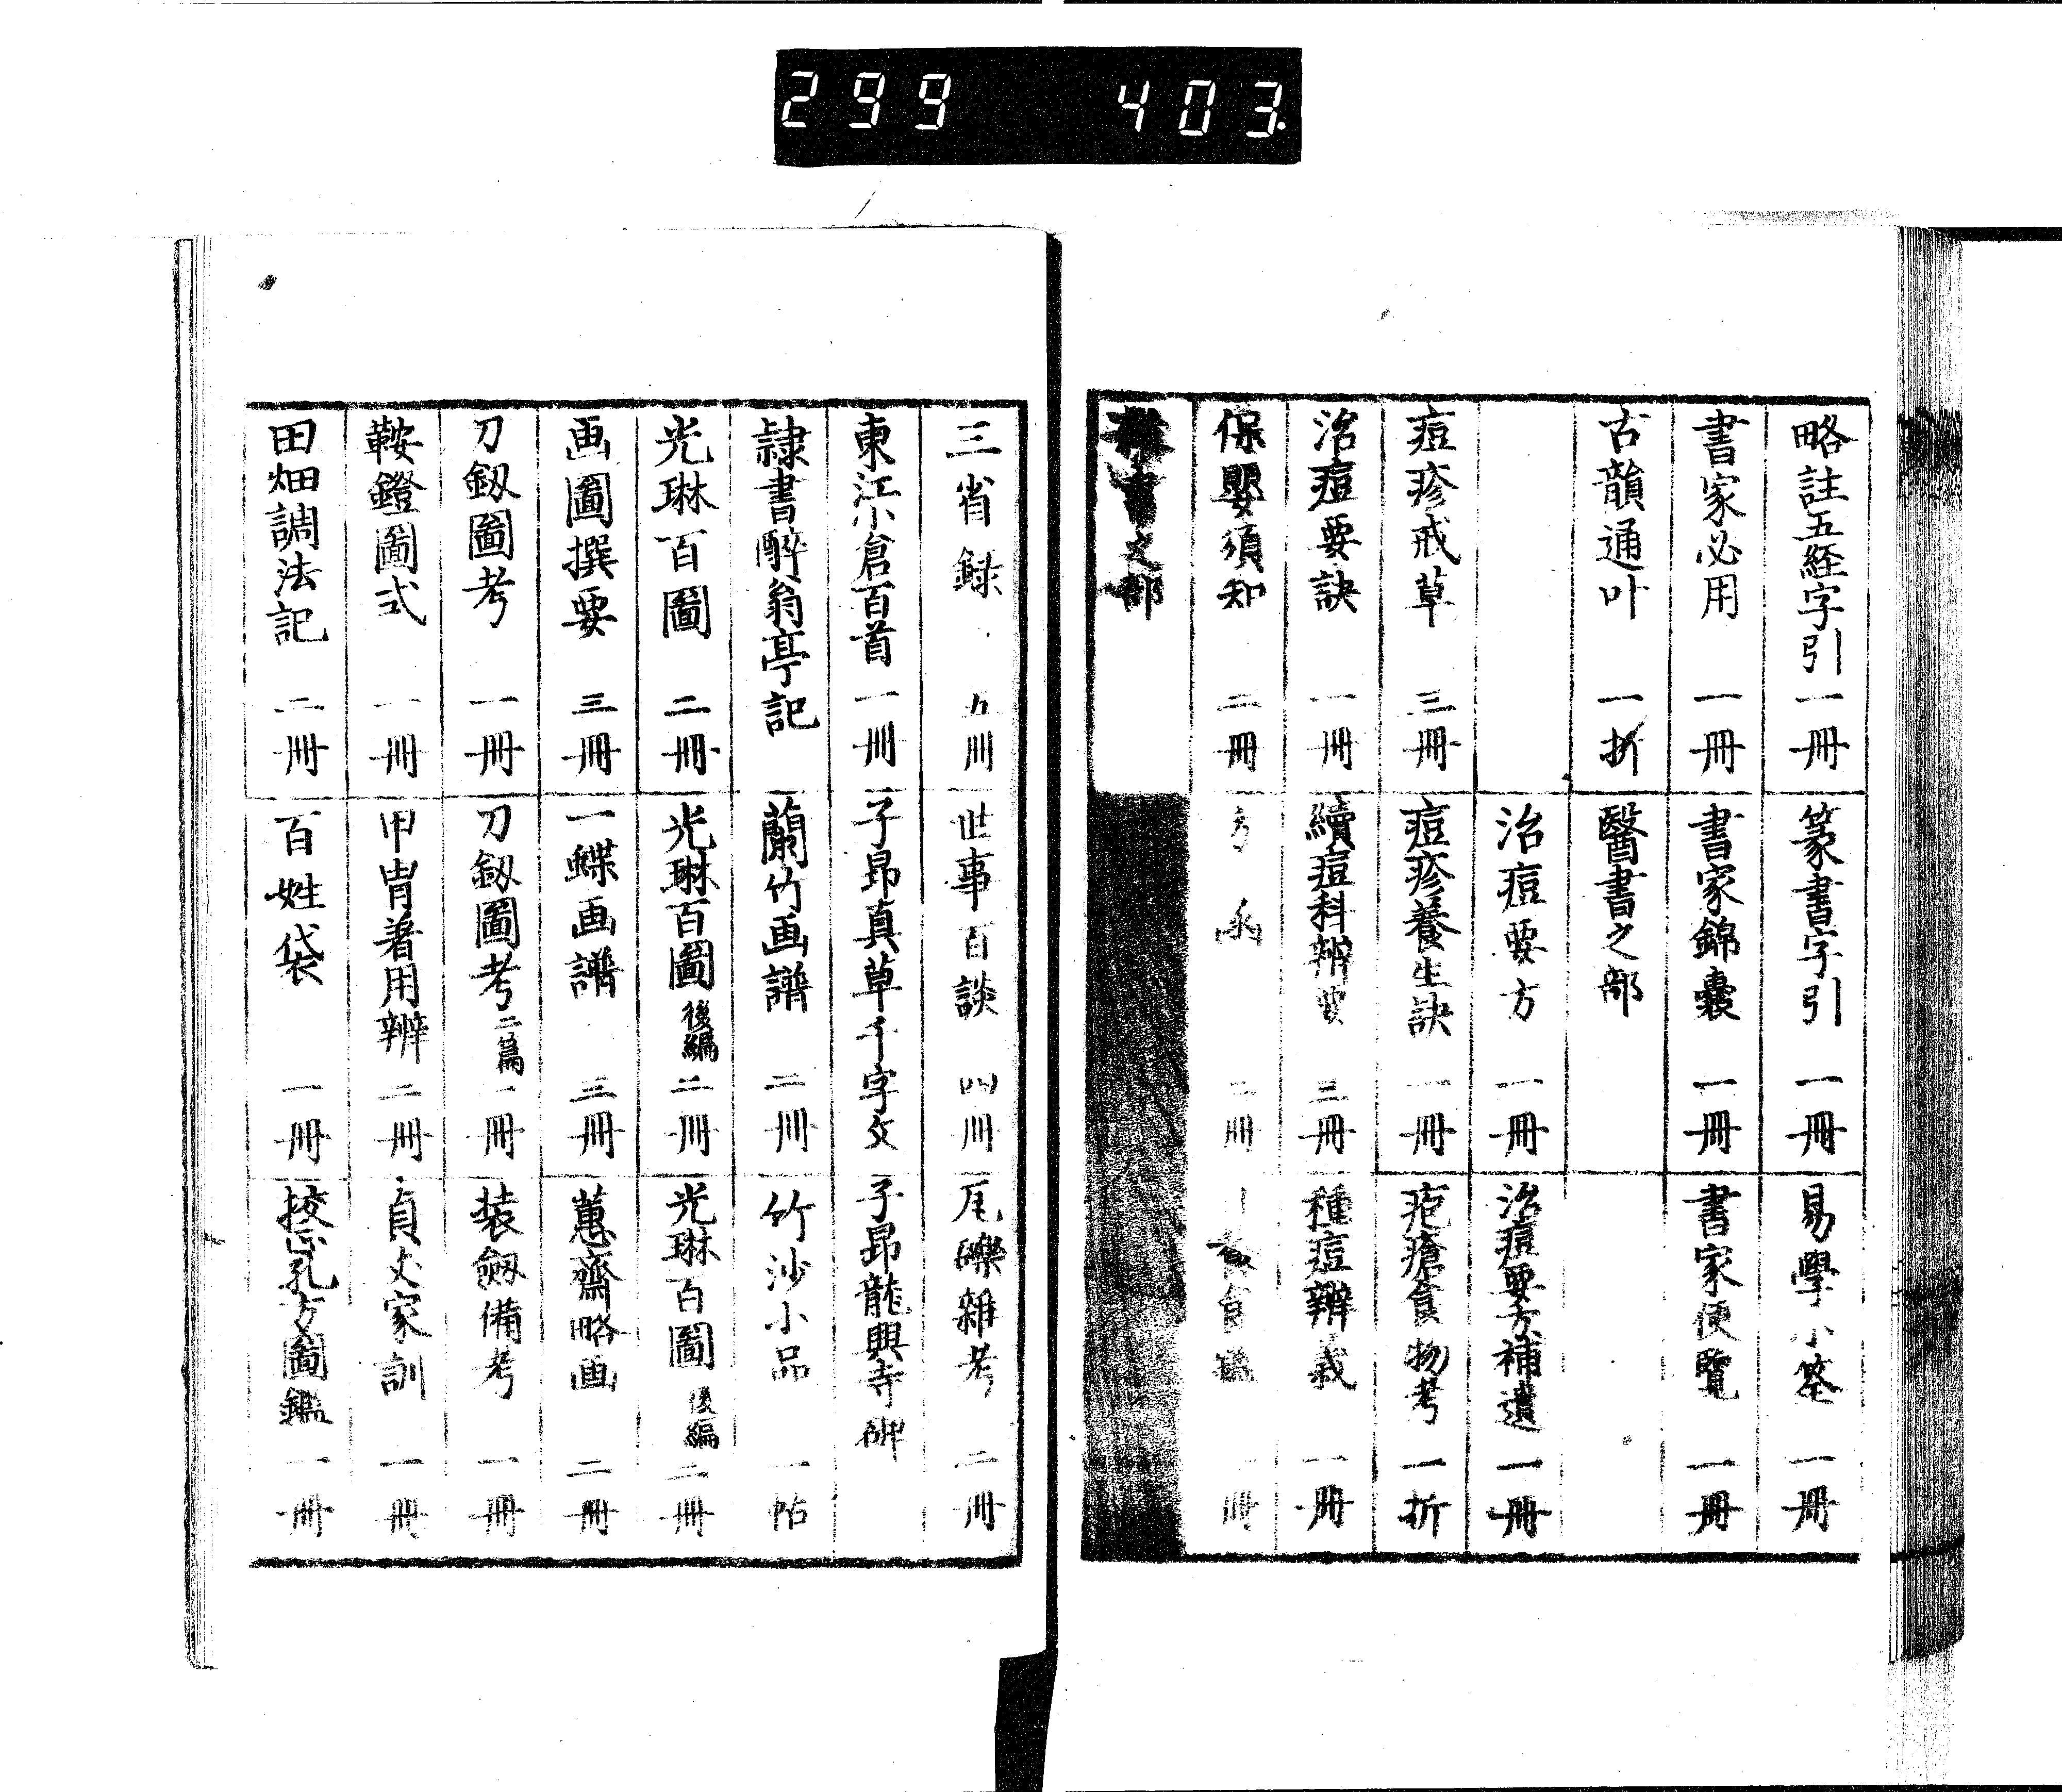 299 403.
略註五経字引 一冊
篆書字引 一冊
易學小筌 一冊
書家必用 一冊
書家錦嚢 一冊
書家便覧 一冊
古韻通叶 一折
醫書之部
治痘要方 一冊
治痘要方補遺 一冊
痘疹戒草 三冊
痘疹養生訣 一冊
疱瘡食物考 一折
治痘要訣 一冊
續痘科辨要 三冊
種痘辨義 一冊
保嬰須知 二冊
二冊
冊
書之部
三省録 五冊
世事百談 四冊
瓦礫雜考 二冊
東江小倉百首 一冊
子昂真草千字文
子昂龍興寺碑
隷書醉翁亭記
蘭竹画譜 二冊
竹沙小品 一帖
光琳百圖 二冊
光琳百圖 後編 二冊
光琳百圖 後編 二冊
画圖撰要 三冊
一蝶画譜 三冊
蕙齋略画 二冊
刀剱圖考 一冊
刀剱圖考 二篇 一冊
装劔備考 一冊
鞍鐙圖式 一冊
甲冑着用辨 二冊
貞丈家訓 一冊
田畑調法記 二冊
百姓袋 一冊
孔方圖鑑 一冊